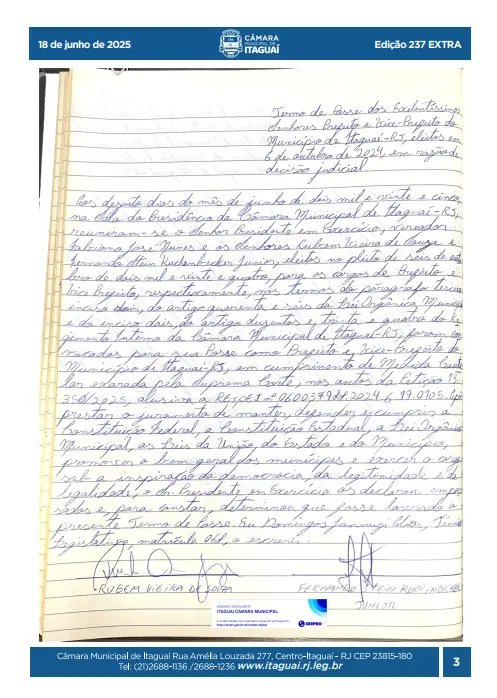 18 de junho de 2025
CÂMARA
MUNICIPAL DE
ITAGUAÍ
Edição 237 EXTRA
Termo de Posse dos Excelentíssimos
Senhores Prefeito e Vice-Prefeito do
Município de Itaguaí-RJ, eleitos em
6 de outubro de 2024, em razão de
decisão judicial.
Aos dezoito dias do mês de junho de dois mil e vinte e cinco,
na Sala da Presidência da Câmara Municipal de Itaguaí-RJ,
reuniram-se o Senhor Presidente em Exercício, Vereador
Fabiano José Nunes e os Senhores Rubem Vieira de Souza e
Fernando Stein Kuchenbecker Junior, eleitos no pleito de seis de outu
bro de dois mil e vinte e quatro, para os cargos de Prefeito e
Vice Prefeito, respectivamente, nos termos do parágrafo terceiro
inciso dois, do artigo quarenta e seis da Lei Orgânica Municipal
e do inciso dois, do artigo duzentos e trinta e quatro do Re
gimento Interno da Câmara Municipal de Itaguaí-RJ, foram con
vocados para sua Posse como Prefeito e Vice-Prefeito do
Município de Itaguaí-RJ, em cumprimento de Medida Caute
lar exarada pela Suprema Corte, nos autos da Petição
350/2025, alusiva a REspEl nº 0600379
prestar o juramento de manter, defender e cumprir a
Constituição Federal, a Constituição Estadual, a Lei Orgânica
Municipal, as Leis da União, do Estado e do Município,
promover o bem geral dos munícipes e exercer o cargo
sob a inspiração da democracia, da legitimidade e da
legalidade, o Sr. Presidente em Exercício os declarou empos
sados e, para constar, determinou que fosse lavrado o
presente Termo de Posse. Eu Domingos
Legislativo, matrícula , o escrevi.
RUBEM VIEIRA DE SOUZA
FERNANDO STEIN KUCHENBECKER
JUNIOR
ITAGUAI CAMARA MUNICIPAL
SERPRO
Câmara Municipal de Itaguaí Rua Amélia Louzada 277, Centro-Itaguaí - RJ CEP 23815-180
Tel: (21)2688-1136 /2688-1236 www.itaguai.rj.leg.br
3